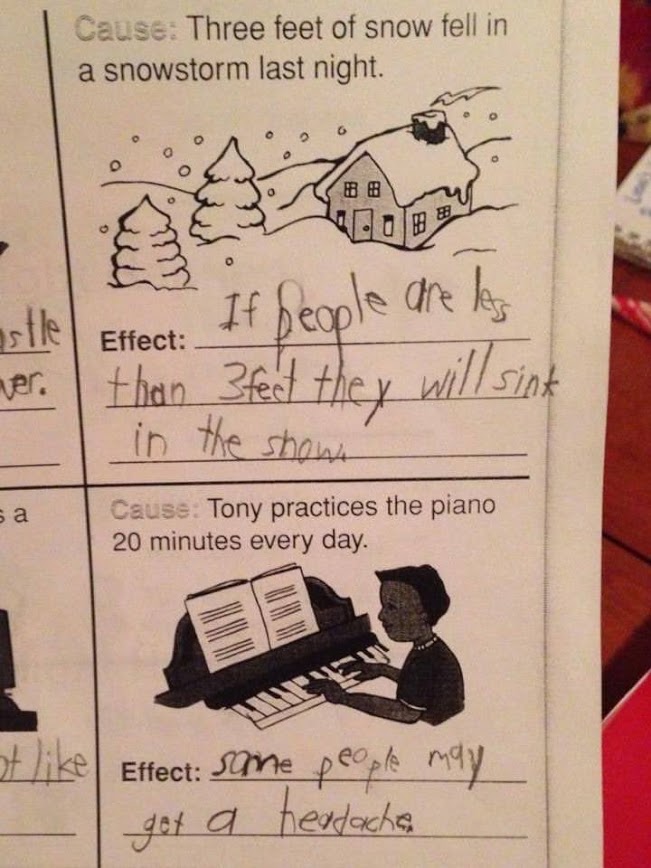 Cause: Three feet of snow fell in
a snowstorm last night.
Effect: If people are less
than 3feet they will sink
in the snow.
Cause: Tony practices the piano
20 minutes every day.
Effect: some people may
get a headache.
like